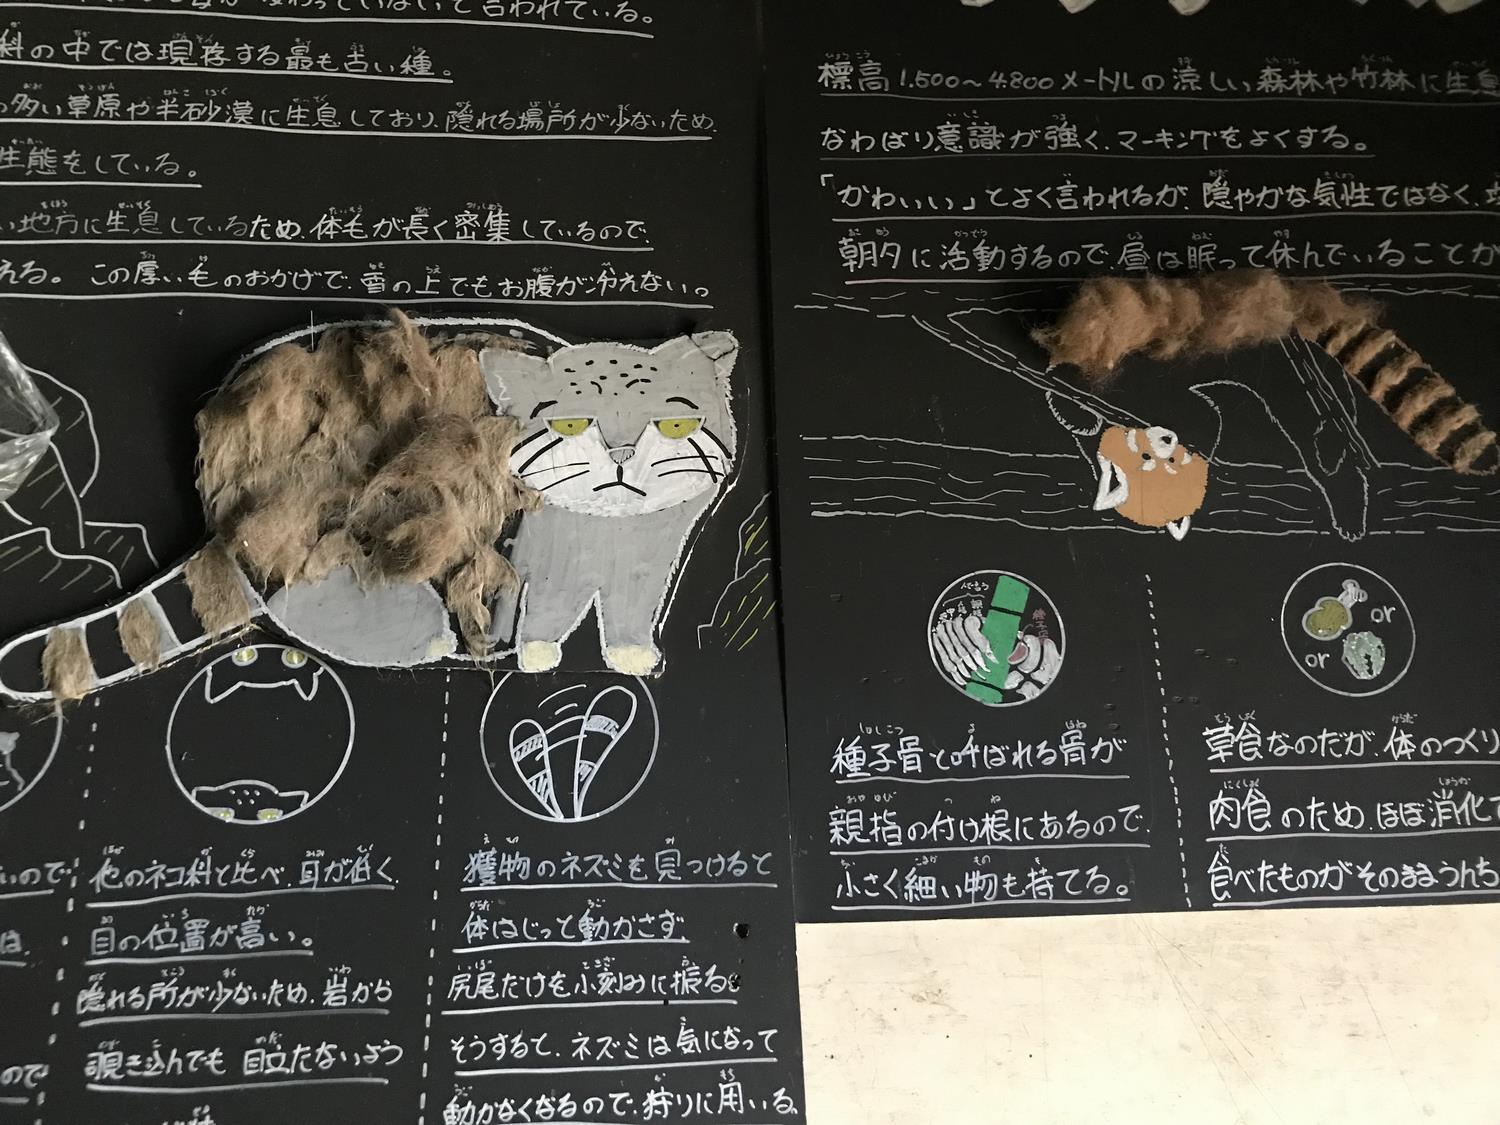 変わっていないと言われている。
科の中では現存する最も古い種。
多い草原や半砂漠に生息しており、隠れる場所が少ないため、
生態をしている。
い地方に生息しているため、体毛が長く密集しているので、
える。この厚い毛のおかげで、雪の上でもお腹が冷えない。
いので
は、
ので
他のネコ科と比べ、耳が低く、
目の位置が高い。
隠れる所が少ないため、岩から
覗き込んでも目立たないよう
獲物のネズミを見つけると
体はじっと動かさず、
尻尾だけを小刻みに振る。
そうすると、ネズミは気になって
動かなくなるので、狩りに用いる。
標高1,500〜4,800メートルの涼しい森林や竹林に生息
なわばり意識が強く、マーキングをよくする。
「かわいい」とよく言われるが、隠やかな気性ではなく、
朝夕に活動するので、昼は眠って休んでいることが
種子骨と呼ばれる骨が
親指の付け根にあるので、
小さく細い物も持てる。
or
or
草食なのだが、体のつくり
肉食のため、ほぼ消化
食べたものがそのままうんち